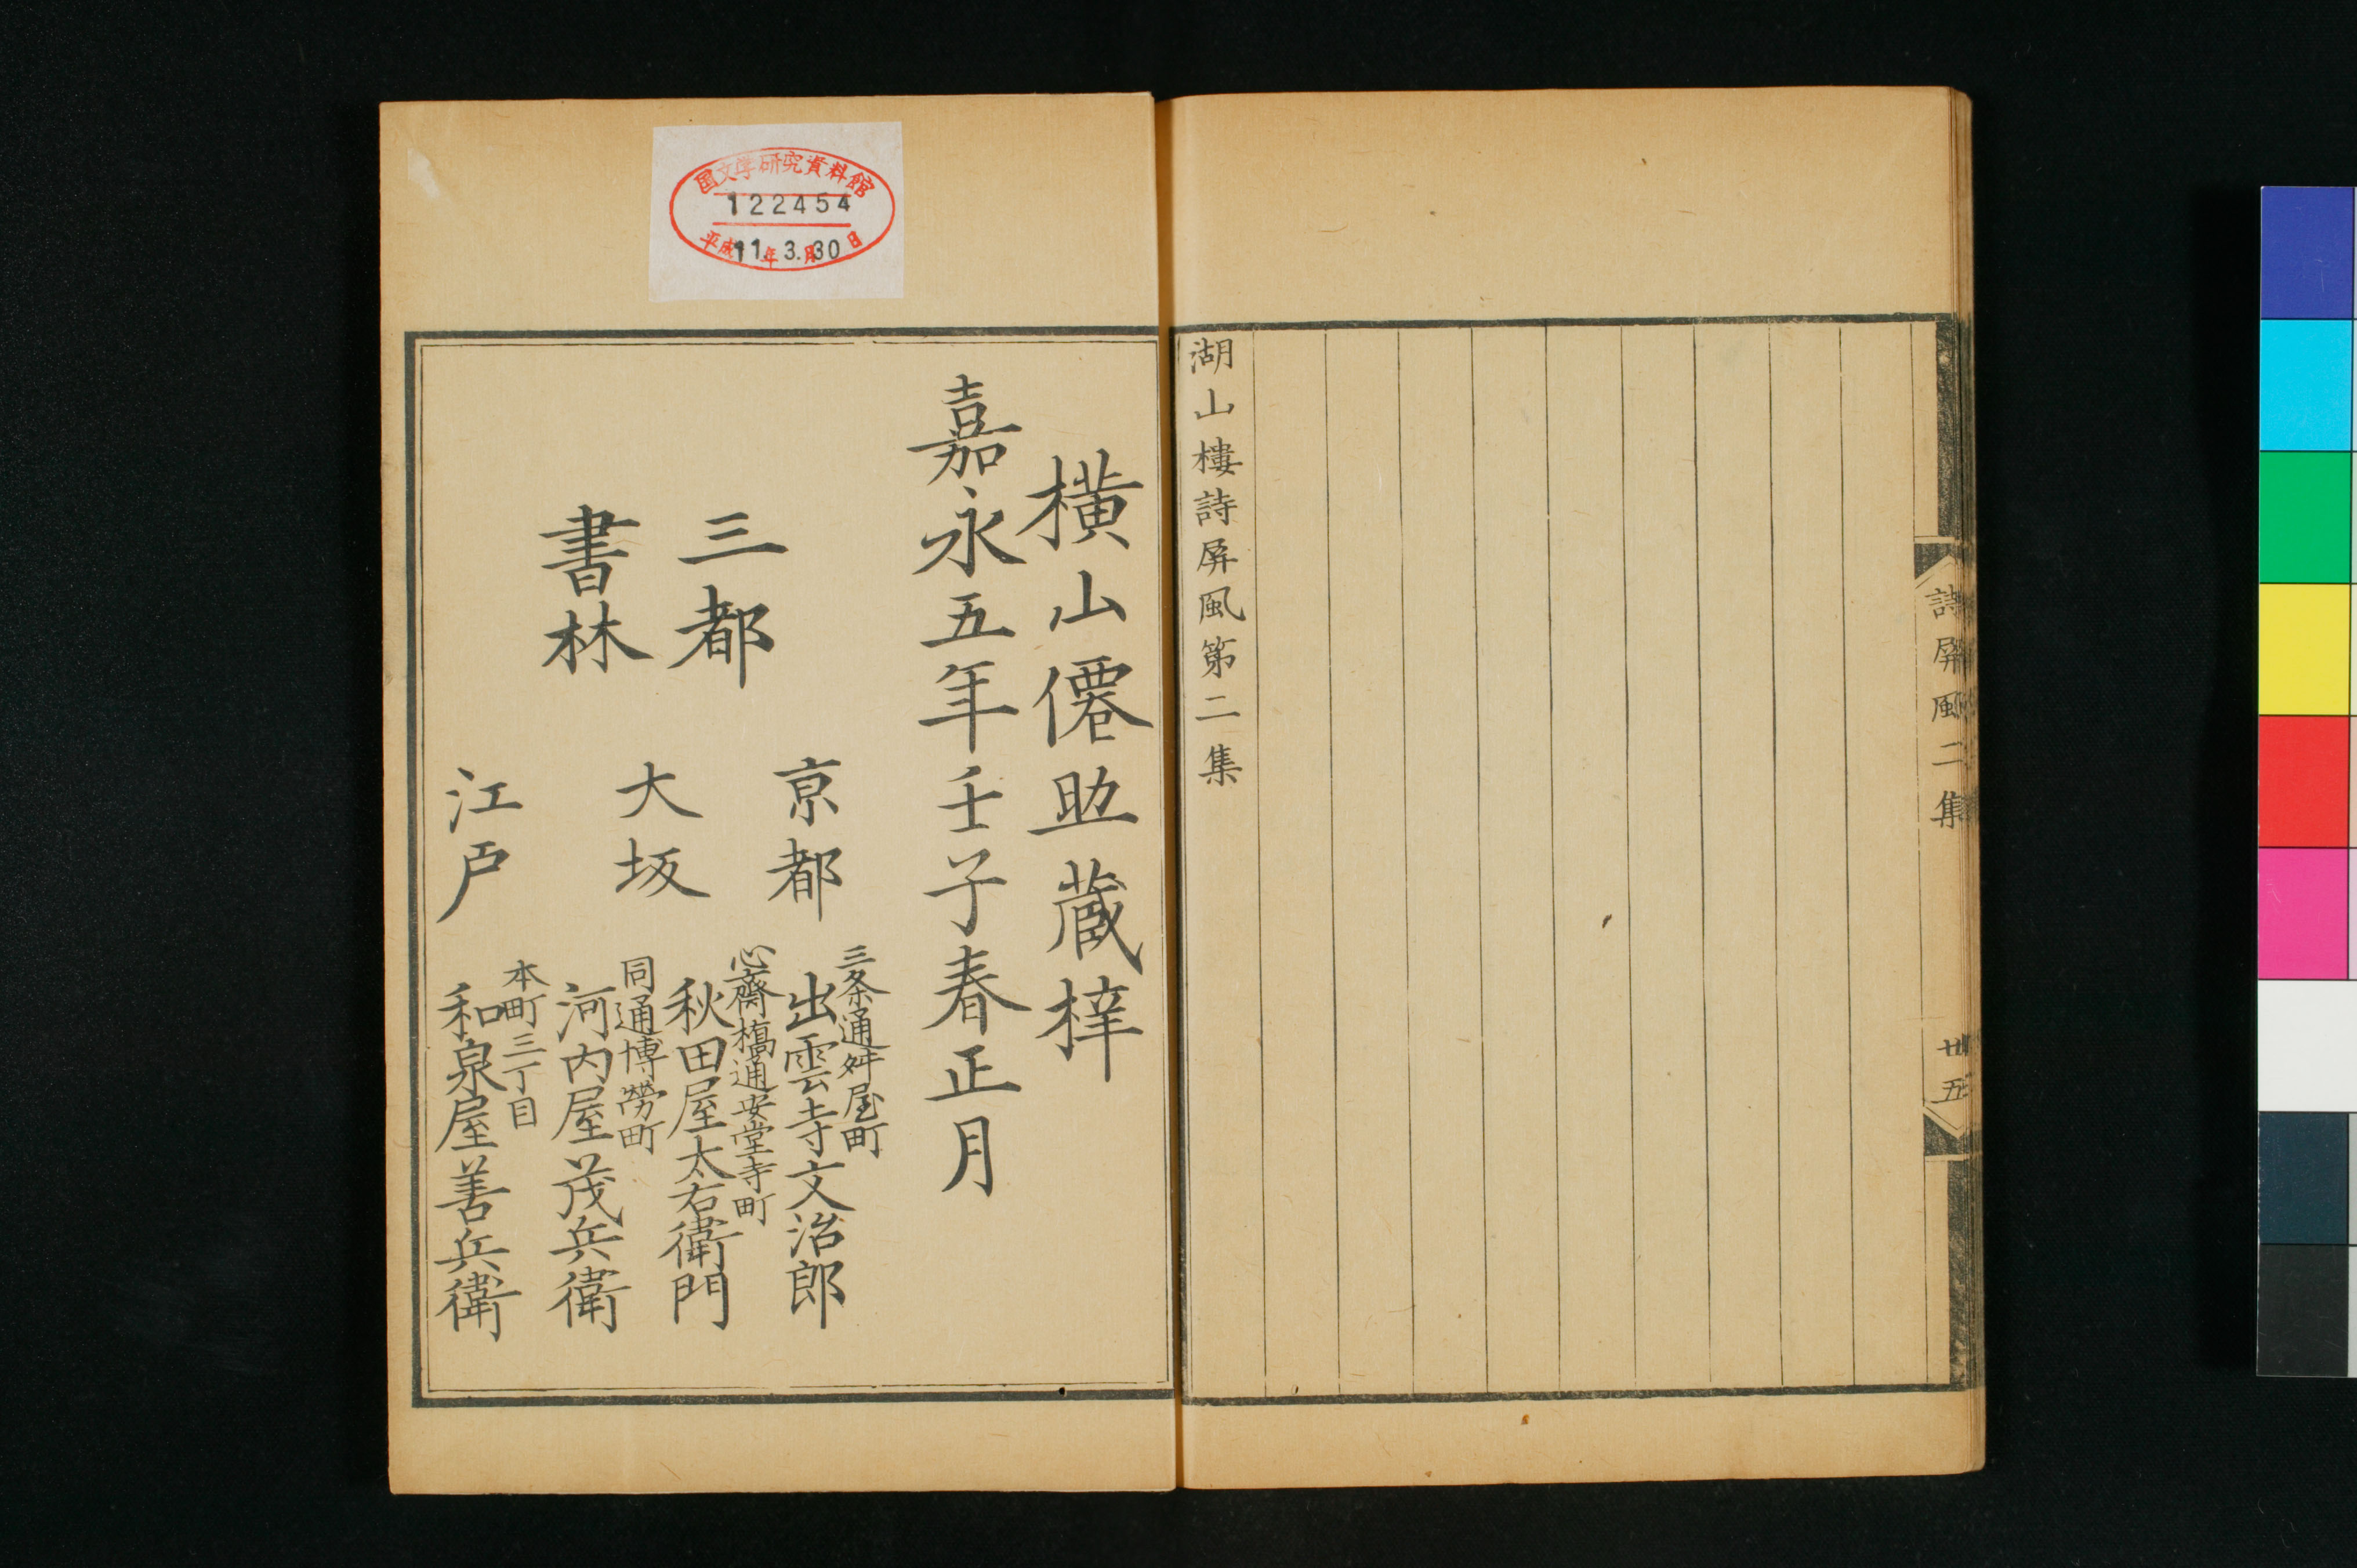 詩屏風二集
廿五
湖山樓詩屏風第二集
国文学研究資料館
122454
平成11年3.月30日
橫山僊助蔵梓
嘉永五年壬子春正月
三都
書林
京都
三条通舛屋町
出雲寺文治郎
大坂
心齋橋通安堂寺町
秋田屋太右衛門
同通博勞町
河内屋茂兵衛
江戸
本町三丁目
和泉屋善兵衛